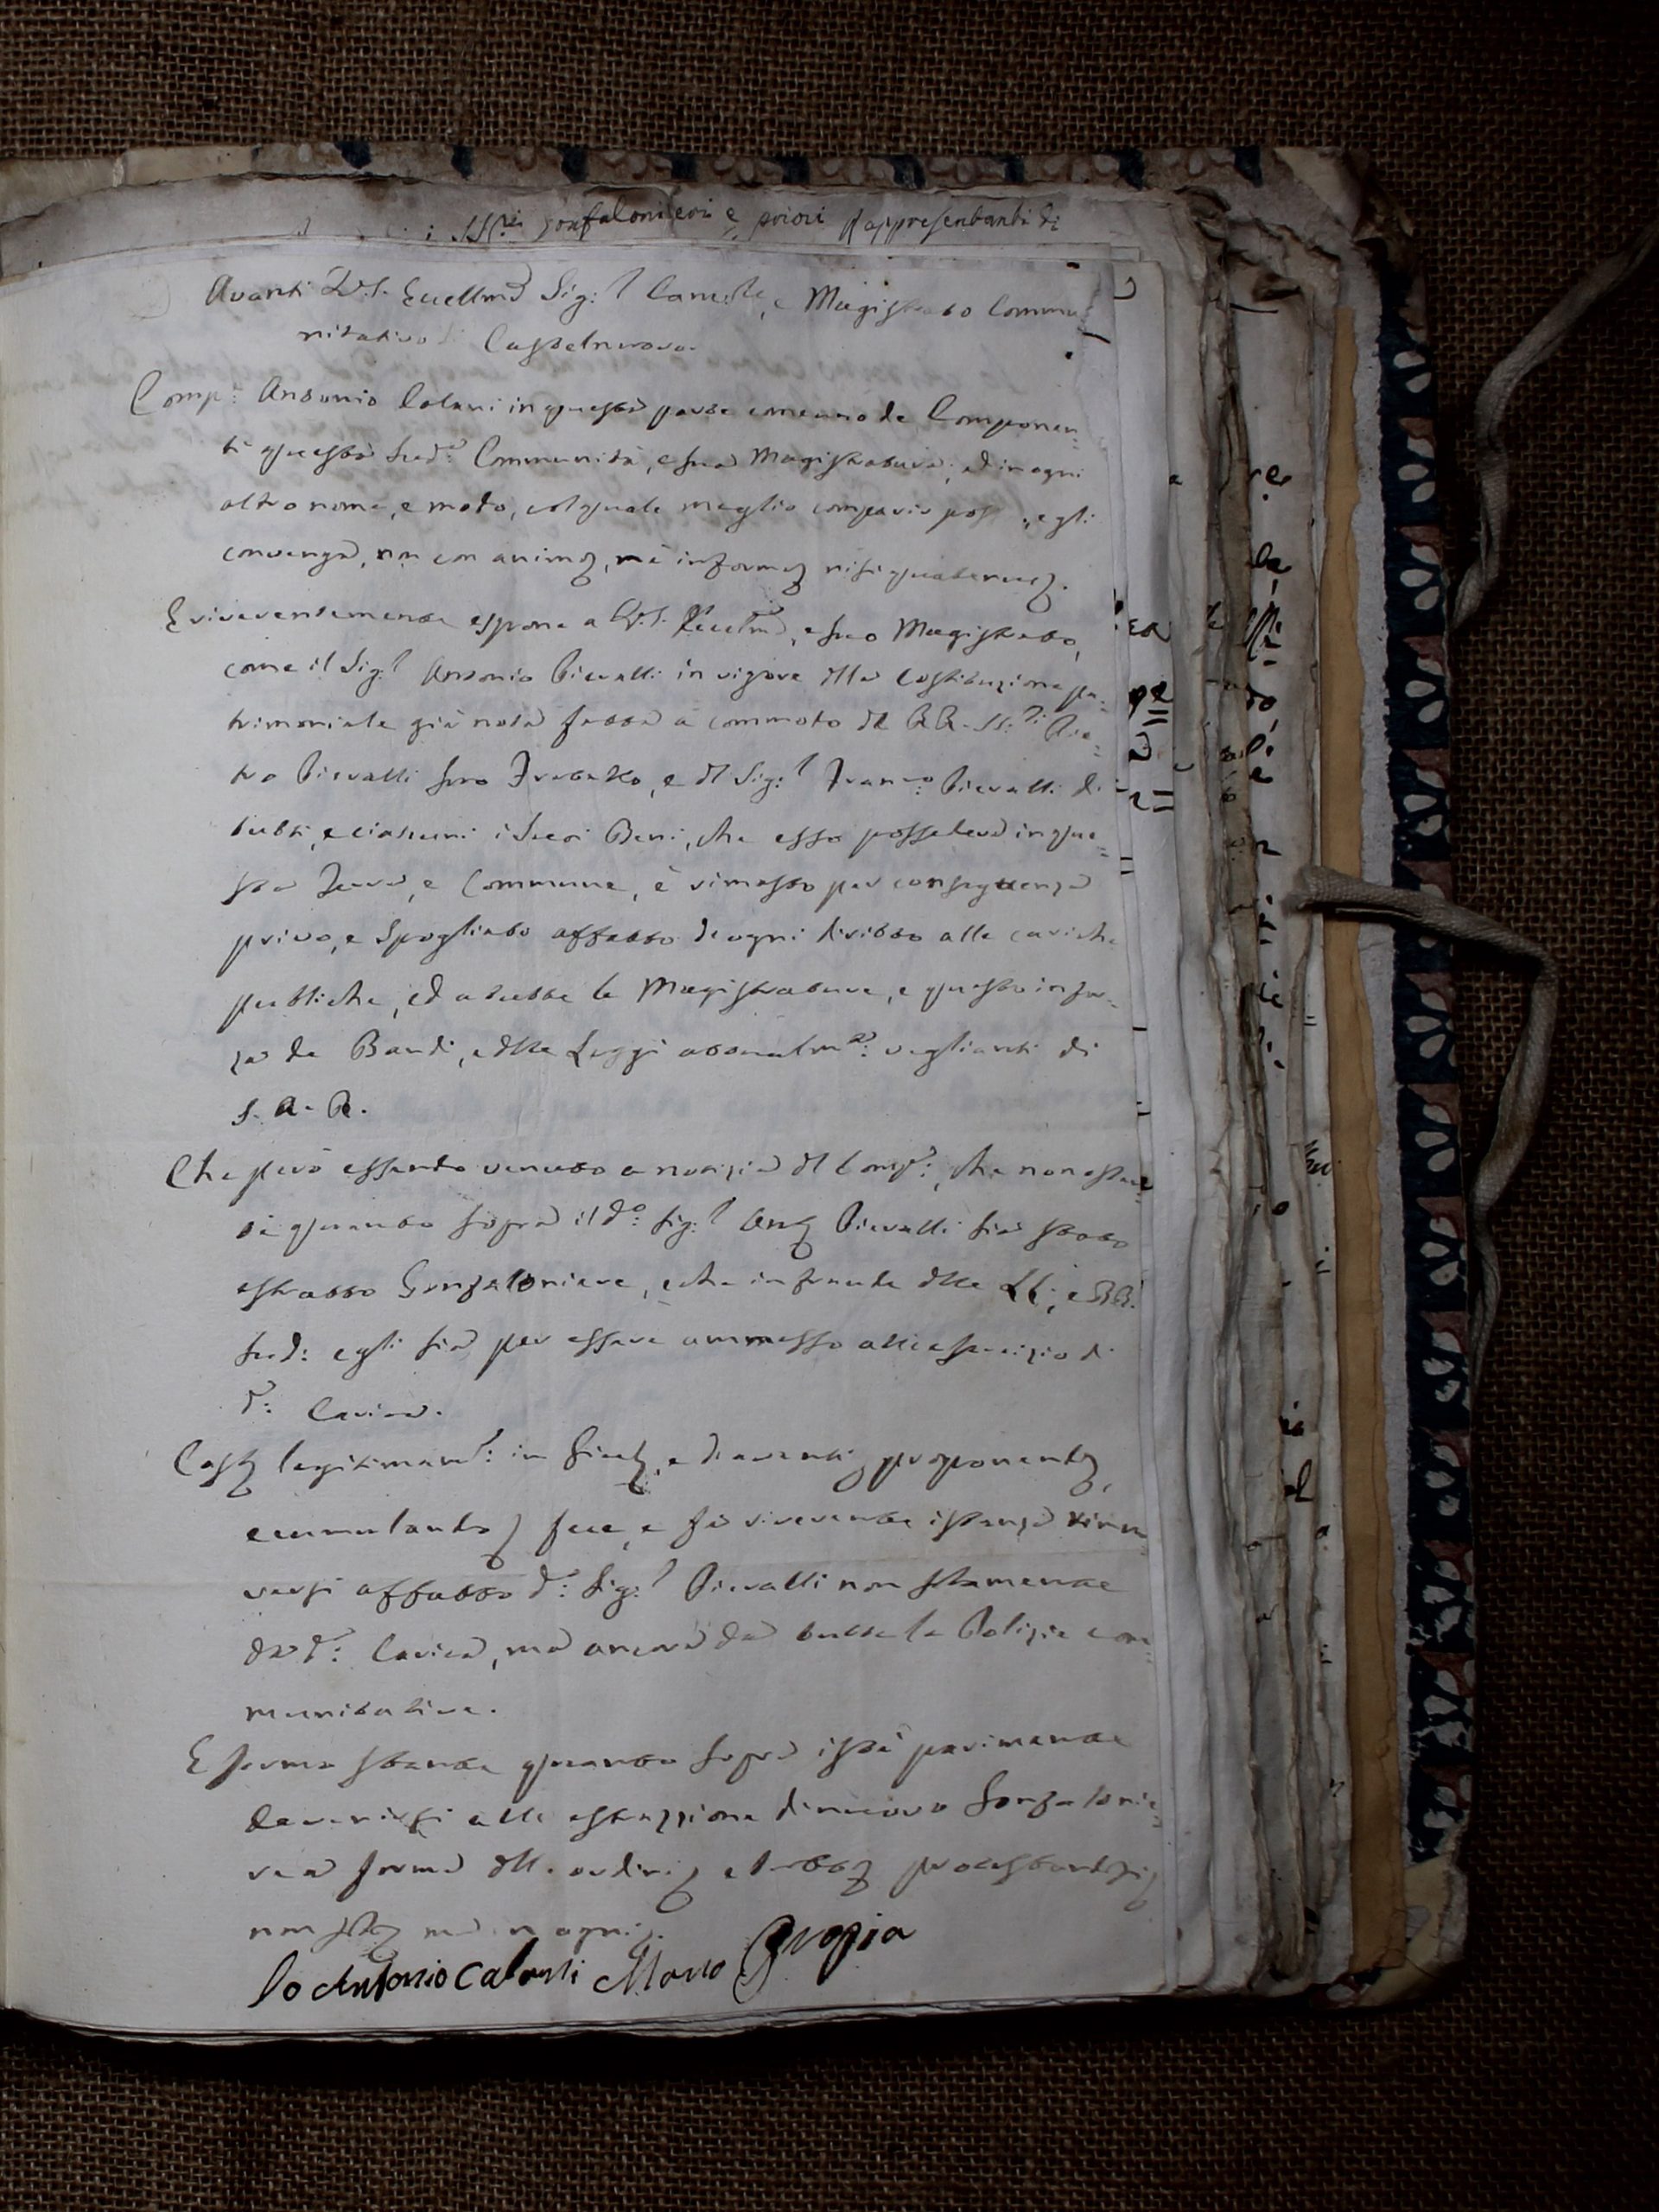 SS.ri Gonfalonieri e priori Rappresentanti di
Avanti V.S. Eccellma Sig:r Cancre, e Magistrato Commu
nitativo di Castelnuovo.
Comp: Antonio Calani in questa parte come uno de Componen=
ti questa sud:a Communità, e sua Magistratura, ed in ogni
altro nome, e modo, col quale meglio comparir poss egli
convenga, non con animo, nè in forma nisi quatenus.
E riverentemente espone a V.S. Eccellma, e suo Magistrato,
come il Sig:r Antonio Pieralli in vigore della Costituzione pa=
trimoniale già nota fatta a commodo del RR. SS:ri Pie=
tro Pieralli suo Fratello, e del Sig:r Franco: Pieralli di
tutti, e ciascuni i suoi Beni, che esso possedeva in que=
sta Terra, e Commune, è rimasto per conseguenza
privo, e spogliato affatto di ogni diritto alle cariche
publiche, ed a tutte le Magistrature, e questo in for=
za de Bandi, e delle Leggi attualme: veglianti di
S. A. R.
Che però essendo venuto a notizia del Comp:, che non ostan=
te quanto sopra il do: Sig:r Anto Pieralli sia stato
estratto Gonfaloniere, e che in fraude delle LL:, e BB:
sud: egli sia per essere ammesso all'esercizio di
da: Carica.
Costo legitimamte: in Giud, e di avanti proponendo,
accumulando fece, e fà riverente istanza rimu
versi affatto do: Sig:r Pieralli non solamente
da da: Carica, ma ancora da tutte le Polizie com=
munitative.
E ferma stante quanto sopra istò parimente
devenirsi alla estrazzione di nuovo Gonfalonie=
re a forma dell. ordini e tutto protestandosi
non solo ma in ogni.
Io Antonio Calani Mano Propria